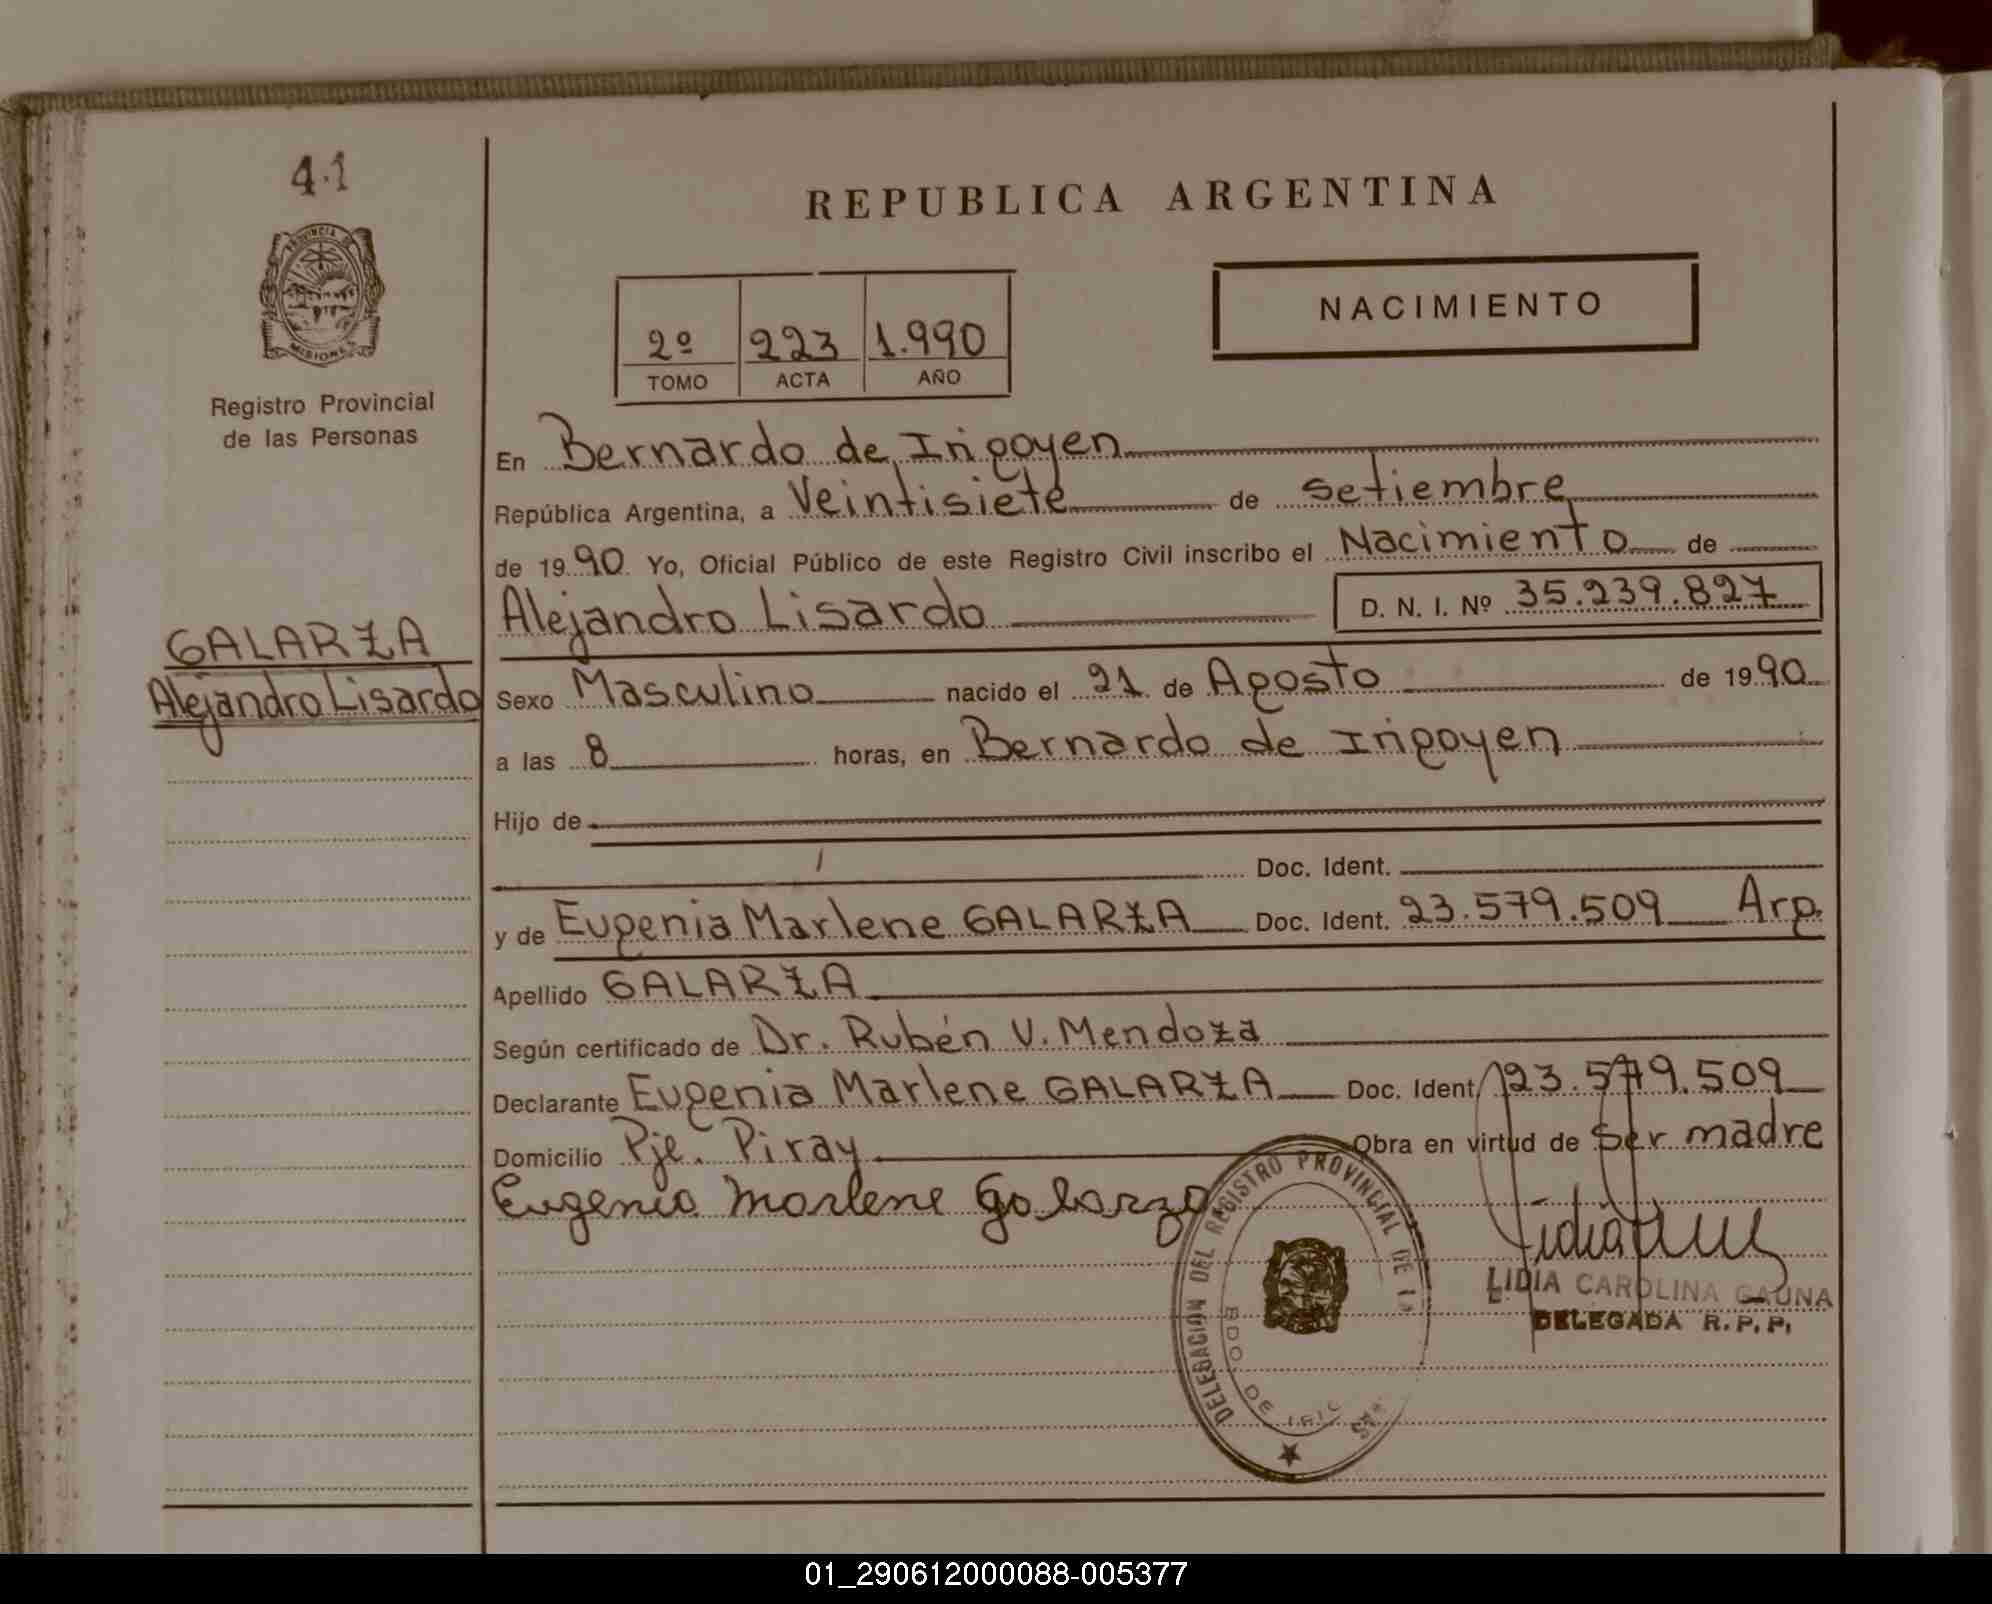 41
PROVINCIA DE
MISIONES
Registro Provincial
de las Personas
GALARZA
Alejandro Lisardo
REPUBLICA ARGENTINA
NACIMIENTO
2º 223 1.990
TOMO ACTA AÑO
En Bernardo de Irigoyen
República Argentina, a Veintisiete de setiembre
de 1990 Yo, Oficial Público de este Registro Civil inscribo el Nacimiento de
Alejandro Lisardo D. N. I. Nº 35.239.827
Sexo Masculino nacido el 21 de Agosto de 1990
a las 8 horas, en Bernardo de Irigoyen
Hijo de
Doc. Ident.
y de Eugenia Marlene GALARZA Doc. Ident. 23.579.509 Arg.
Apellido GALARZA
Según certificado de Dr. Rubén V. Mendoza
Declarante Eugenia Marlene GALARZA Doc. Ident. 23.579.509
Domicilio Pje. Piray Obra en virtud de ser madre
Eugenia Marlene Galarza
DELEGACION DEL REGISTRO PROVINCIAL DE LAS
BDO. DE IRIG
LIDIA CAROLINA GAUNA
DELEGADA R.P.P.
01_290612000088-005377